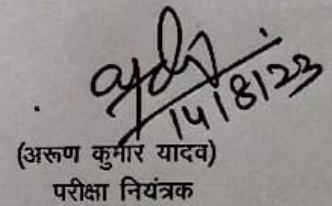 14/8/23
(अरूण कुमार यादव)
परीक्षा नियंत्रक